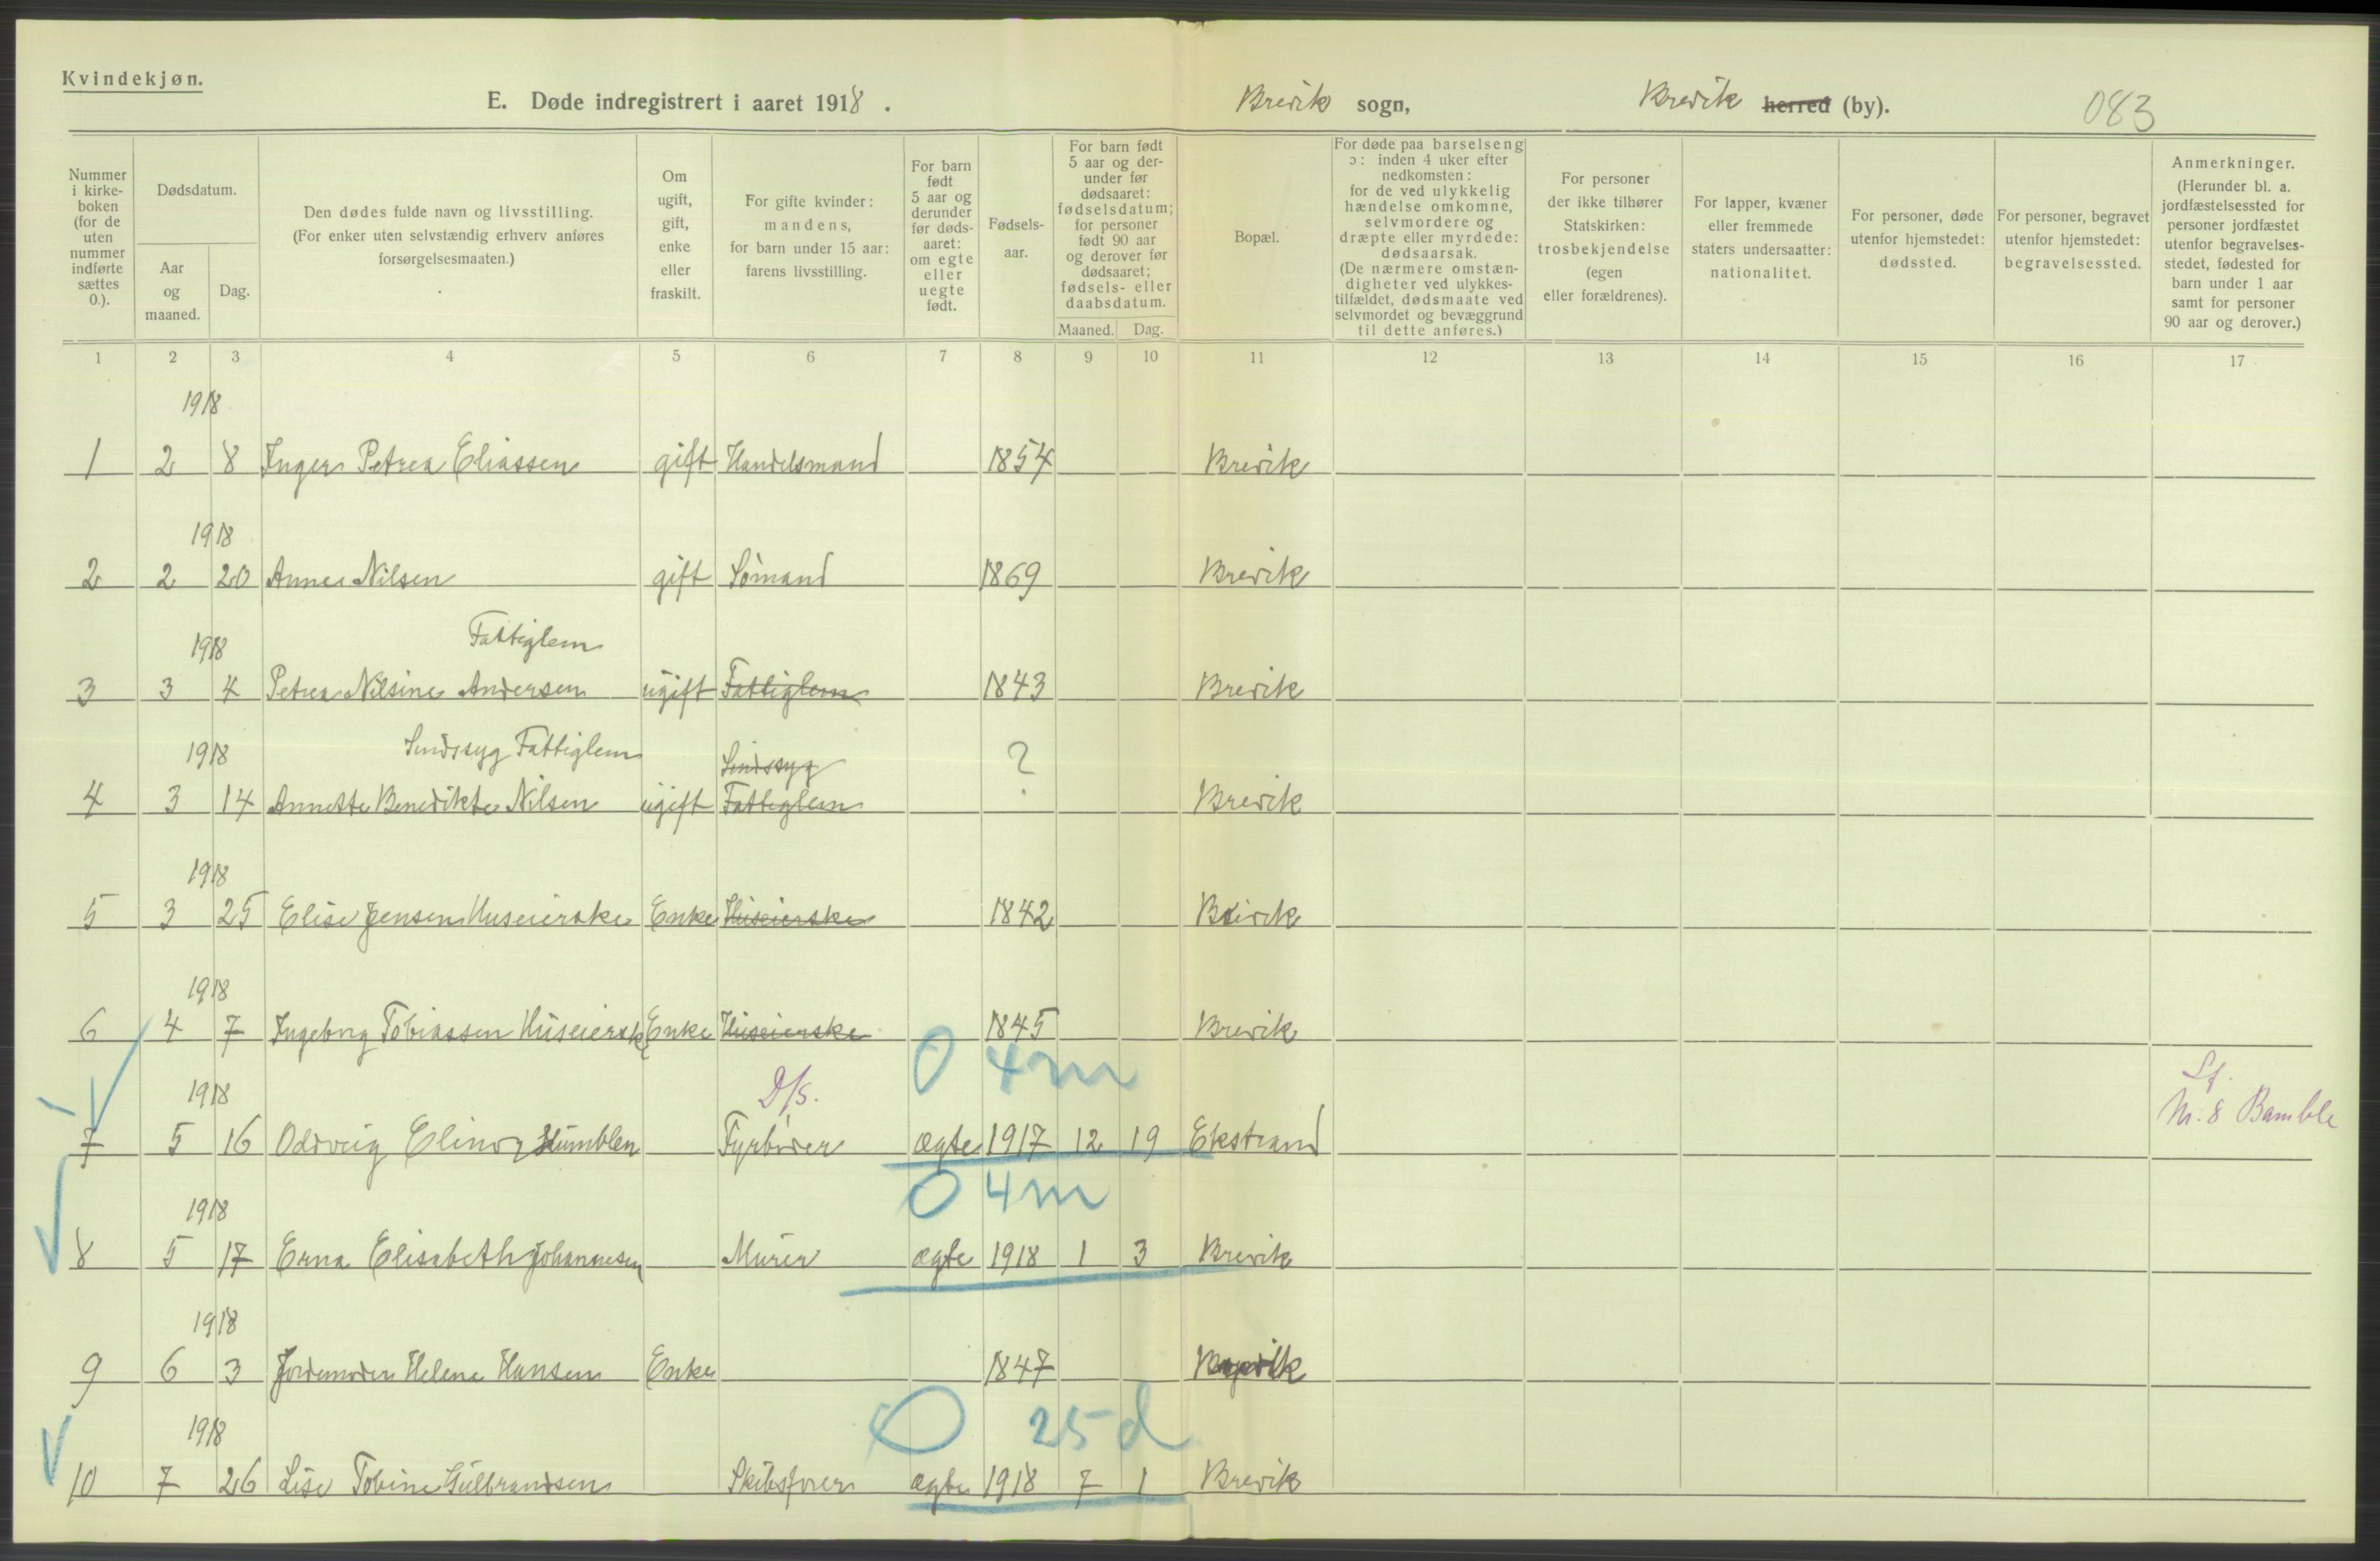 Kvindekjøn.
E. Døde indregistrert i aaret 1918. Brevik sogn, Brevik herred (by). 083
Nummer i kirkeboken (for de uten nummer indførte sættes 0.).
Dødsdatum.
Aar og maaned.
Dag.
Den dødes fulde navn og livsstilling. (For enker uten selvstændig erhverv anføres forsørgelsesmaaten.)
Om ugift, gift, enke eller fraskilt.
For gifte kvinder: mandens, for barn under 15 aar: farens livsstilling.
For barn født 5 aar og derunder før dødsaaret: om egte eller uegte født.
Fødselsaar.
For barn født 5 aar og derunder før dødsaaret: fødselsdatum; for personer født 90 aar og derover før dødsaaret; fødsels- eller daabsdatum.
Maaned. Dag.
Bopæl.
For døde paa barselseng ɔ: inden 4 uker efter nedkomsten: for de ved ulykkelig hændelse omkomne, selvmordere og dræpte eller myrdede: dødsaarsak. (De nærmere omstændigheter ved ulykkestilfældet, dødsmaate ved selvmordet og bevæggrund til dette anføres.)
For personer der ikke tilhører Statskirken: trosbekjendelse (egen eller forældrenes).
For lapper, kvæner eller fremmede staters undersaatter: nationalitet.
For personer, døde utenfor hjemstedet: dødssted.
For personer, begravet utenfor hjemstedet: begravelsessted.
Anmerkninger. (Herunder bl. a. jordfæstelsessted for personer jordfæstet utenfor begravelsesstedet, fødested for barn under 1 aar samt for personer 90 aar og derover.)
1 2 3 4 5 6 7 8 9 10 11 12 13 14 15 16 17
1918
1 2 8 Inger Petrea Eliassen gift Handelsmand 1854 Brevik
1918
2 2 20 Anne Nilsen gift Sömand 1869 Brevik
1918 Fattiglem
3 3 4 Petrea Nilsine Andersen ugift Fattiglem 1843 Brevik
1918 Sindssyg Fattiglem Sindssyg ?
4 3 14 Annette Benedikte Nilsen ugift Fattiglem Brevik
1918
5 3 25 Elise Jensen Huseierske Enke Huseierske 1842 Brevik
1918
6 4 7 Ingeborg Tobiassen Huseierske Enke Huseierske 1845 Brevik
0 4m
1918 D/s. Lf.
7 5 16 Oddveig Elinor Humblen Fyrböder ægte 1917 12 19 Ekstrand Nr. 8 Bamble
0 4m
1918
8 5 17 Erna Elisabeth Johannesen Murer ægte 1918 1 3 Brevik
1918
9 6 3 Jordemoder Helene Hansen Enke 1847 Brevik
0 25 d
1918
10 7 26 Lise Tobine Gulbrandsen Skibsförer ægte 1918 7 1 Brevik